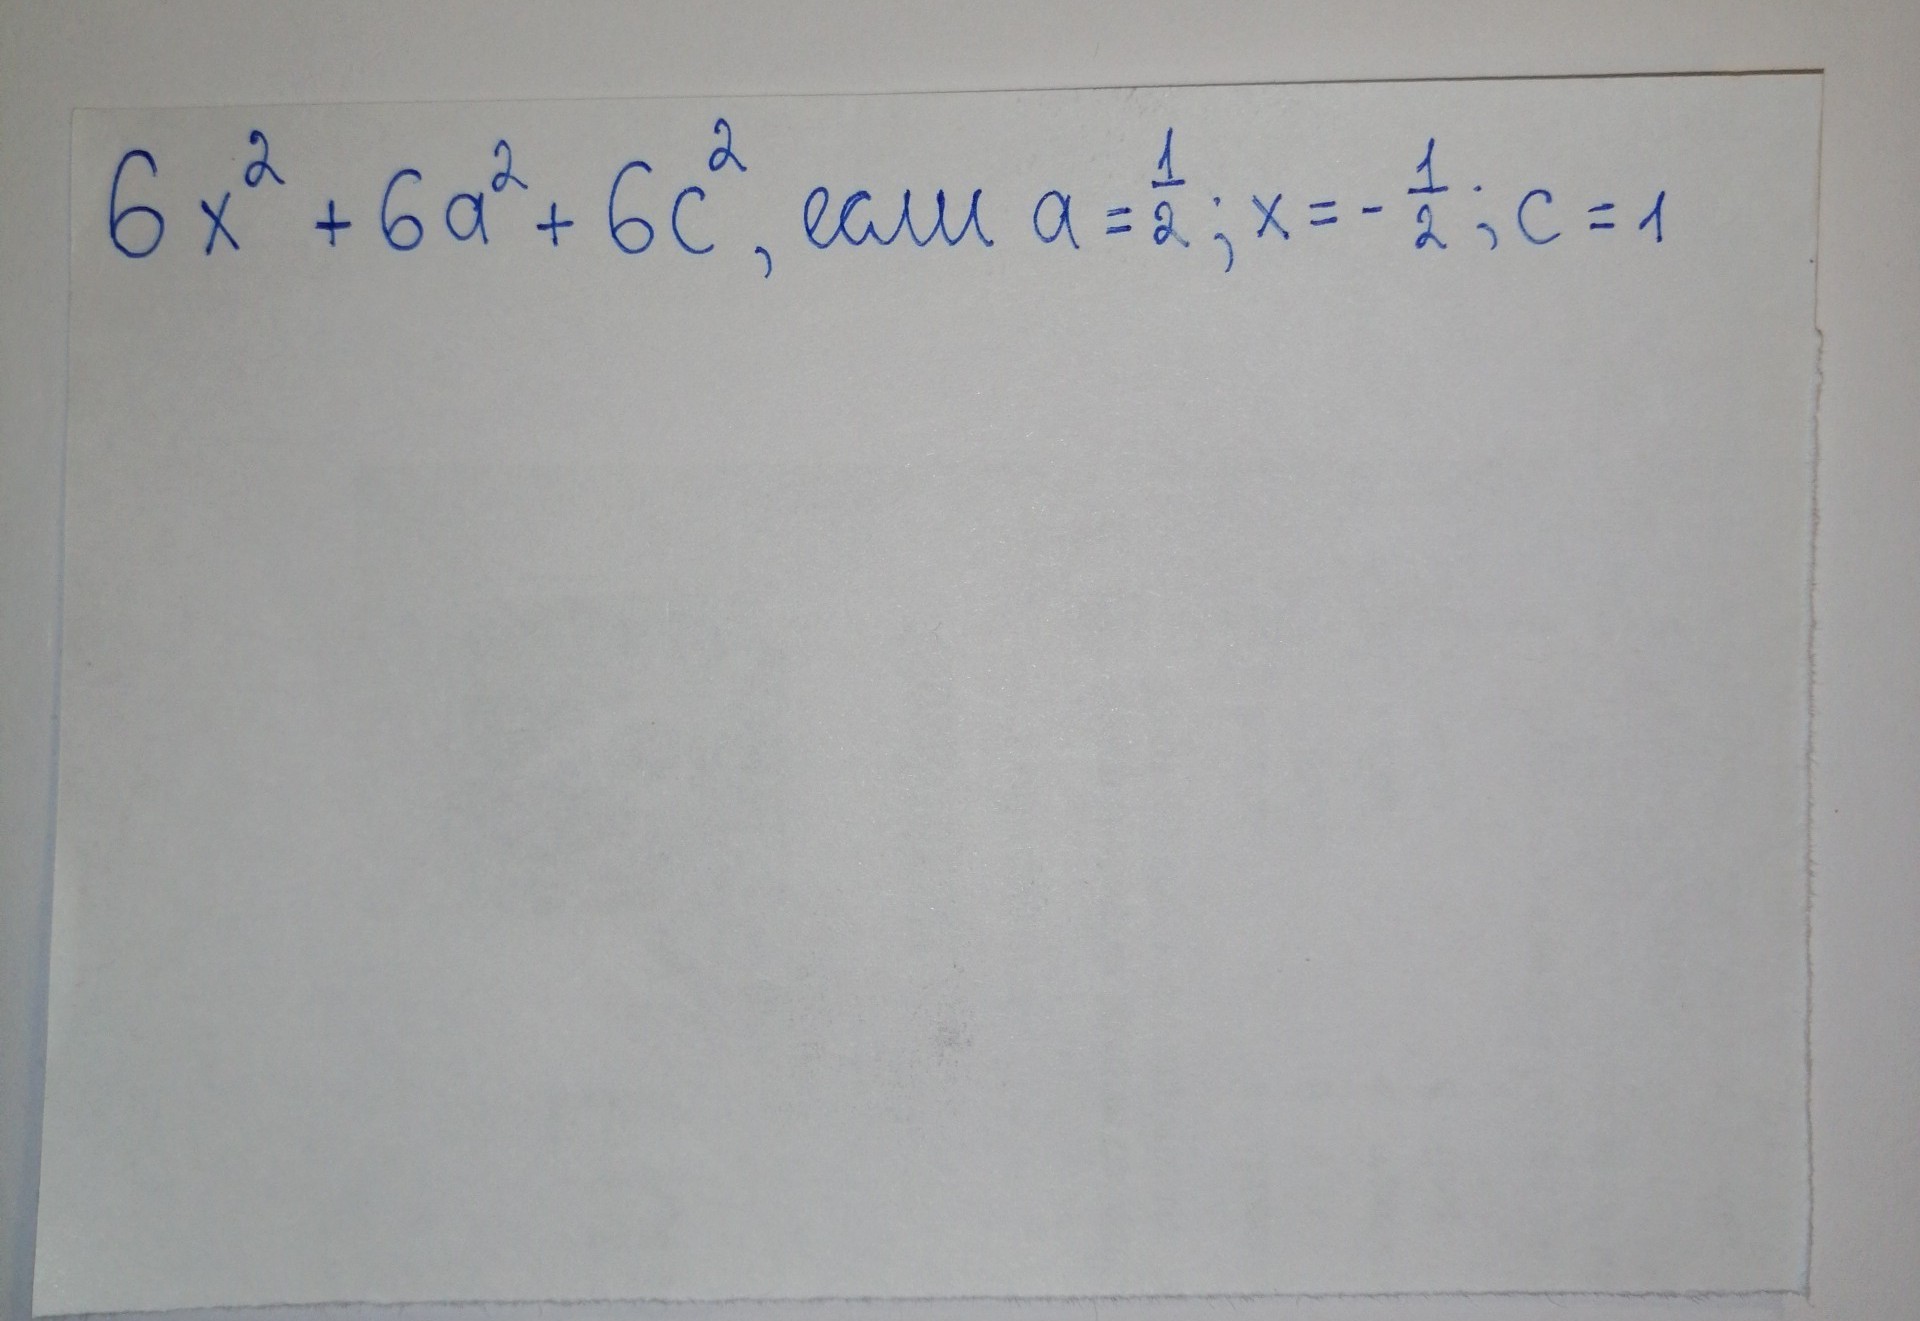 6x² + 6a² + 6c², если a = 1/2; x = - 1/2; c = 1